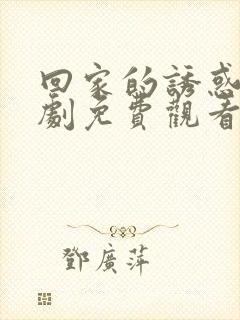 回家的誘惑
劇免費觀看
鄧廣萍